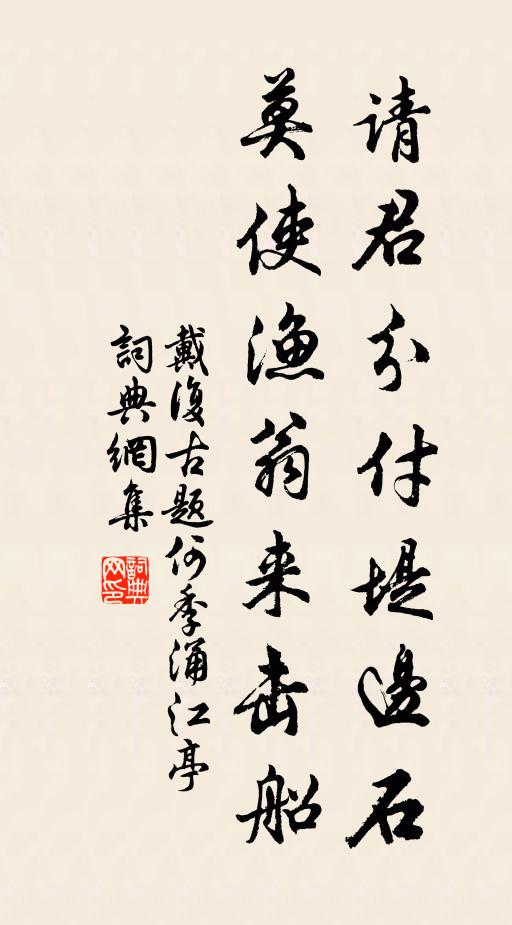 请君分付堤邊石
莫使漁翁来击船
戴復古题何季涌江亭
詞典網集
詞典
网印